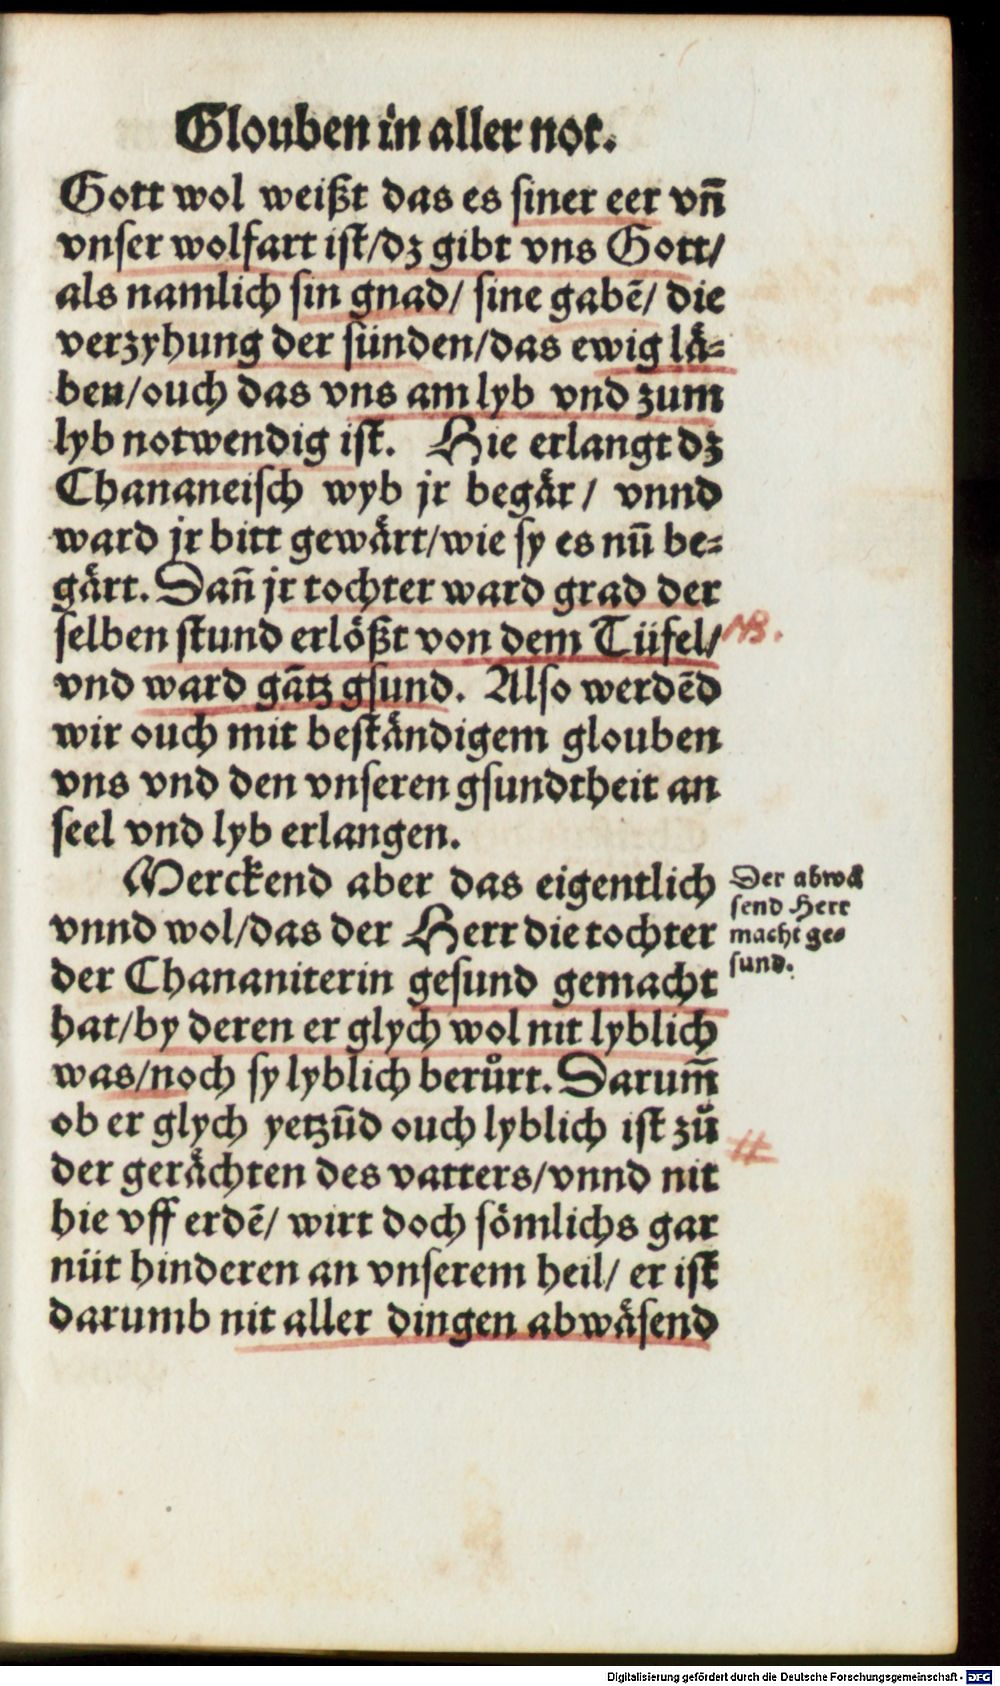 Glouben in aller not.
Gott wol weißt das es siner eer vñ
vnser wolfart ist/dz gibt vns Gott/
als namlich sin gnad/ sine gabẽ/ die
verzyhung der sünden/das ewig lä⸗
ben/ouch das vns am lyb vnd zum
lyb notwendig ist. Hie erlangt dz
Chananeisch wyb jr begär/ vnnd
ward jr bitt gewärt/wie sy es nũ be⸗
gärt. Dañ jr tochter ward grad der
selben stund erlößt von dem Tüfel/
NB.
vnd ward gãtz gsund. Also werdẽd
wir ouch mit beständigem glouben
vns vnd den vnseren gsundtheit an
seel vnd lyb erlangen.
Merckend aber das eigentlich
vnnd wol/das der Herr die tochter
der Chananiterin gesund gemacht
hat/by deren er glych wol nit lyblich
was/noch sy lyblich berůrt. Darum̃
ob er glych yetzũd ouch lyblich ist zů
der gerächten des vatters/vnnd nit
hie vff erdẽ/ wirt doch sömlichs gar
nüt hinderen an vnserem heil/ er ist
darumb nit aller dingen abwäsend
Der abwä
send Herr
macht ge⸗
sund.
Digitalisierung gefördert durch die Deutsche Forschungsgemeinschaft - DFG